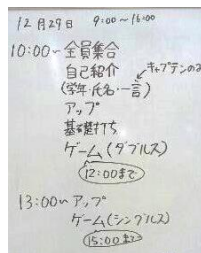 12月29日 9:00～16:00
10:00～全員集合
自己紹介
キャプテンのみ
(学年・氏名・一言)
アップ
基礎打ち
ゲーム(ダブルス)
12:00まで
13:00～アップ
ゲーム(シングルス)
15:00まで